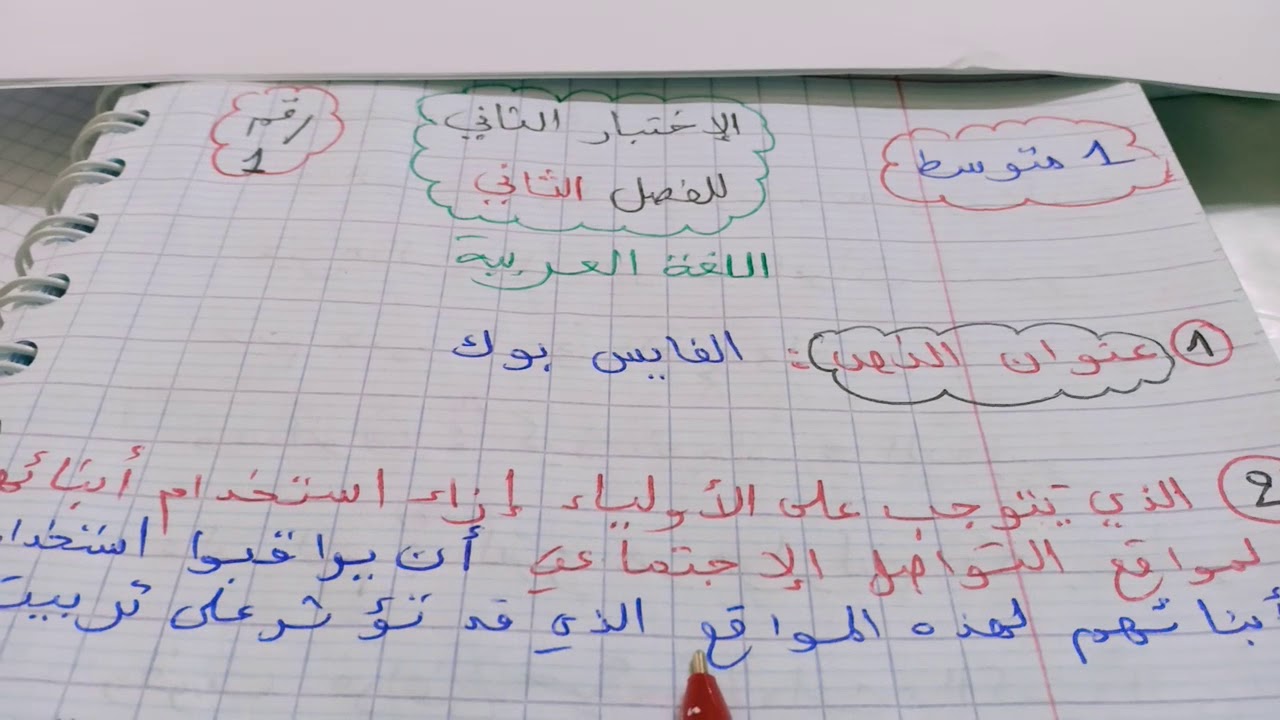 1 متوسط
الإختبار الثاني
للفصل الثاني
رقم
1
اللغة العربية
1 عنوان النص: الفايس بوك
2 الذي يتوجب على الأولياء إزاء استخدام أبنائهم
لمواقع التواصل الإجتماعي أن يراقبوا استخدام
أبنائهم لهذه المواقع الذي قد تؤثر على تربيت